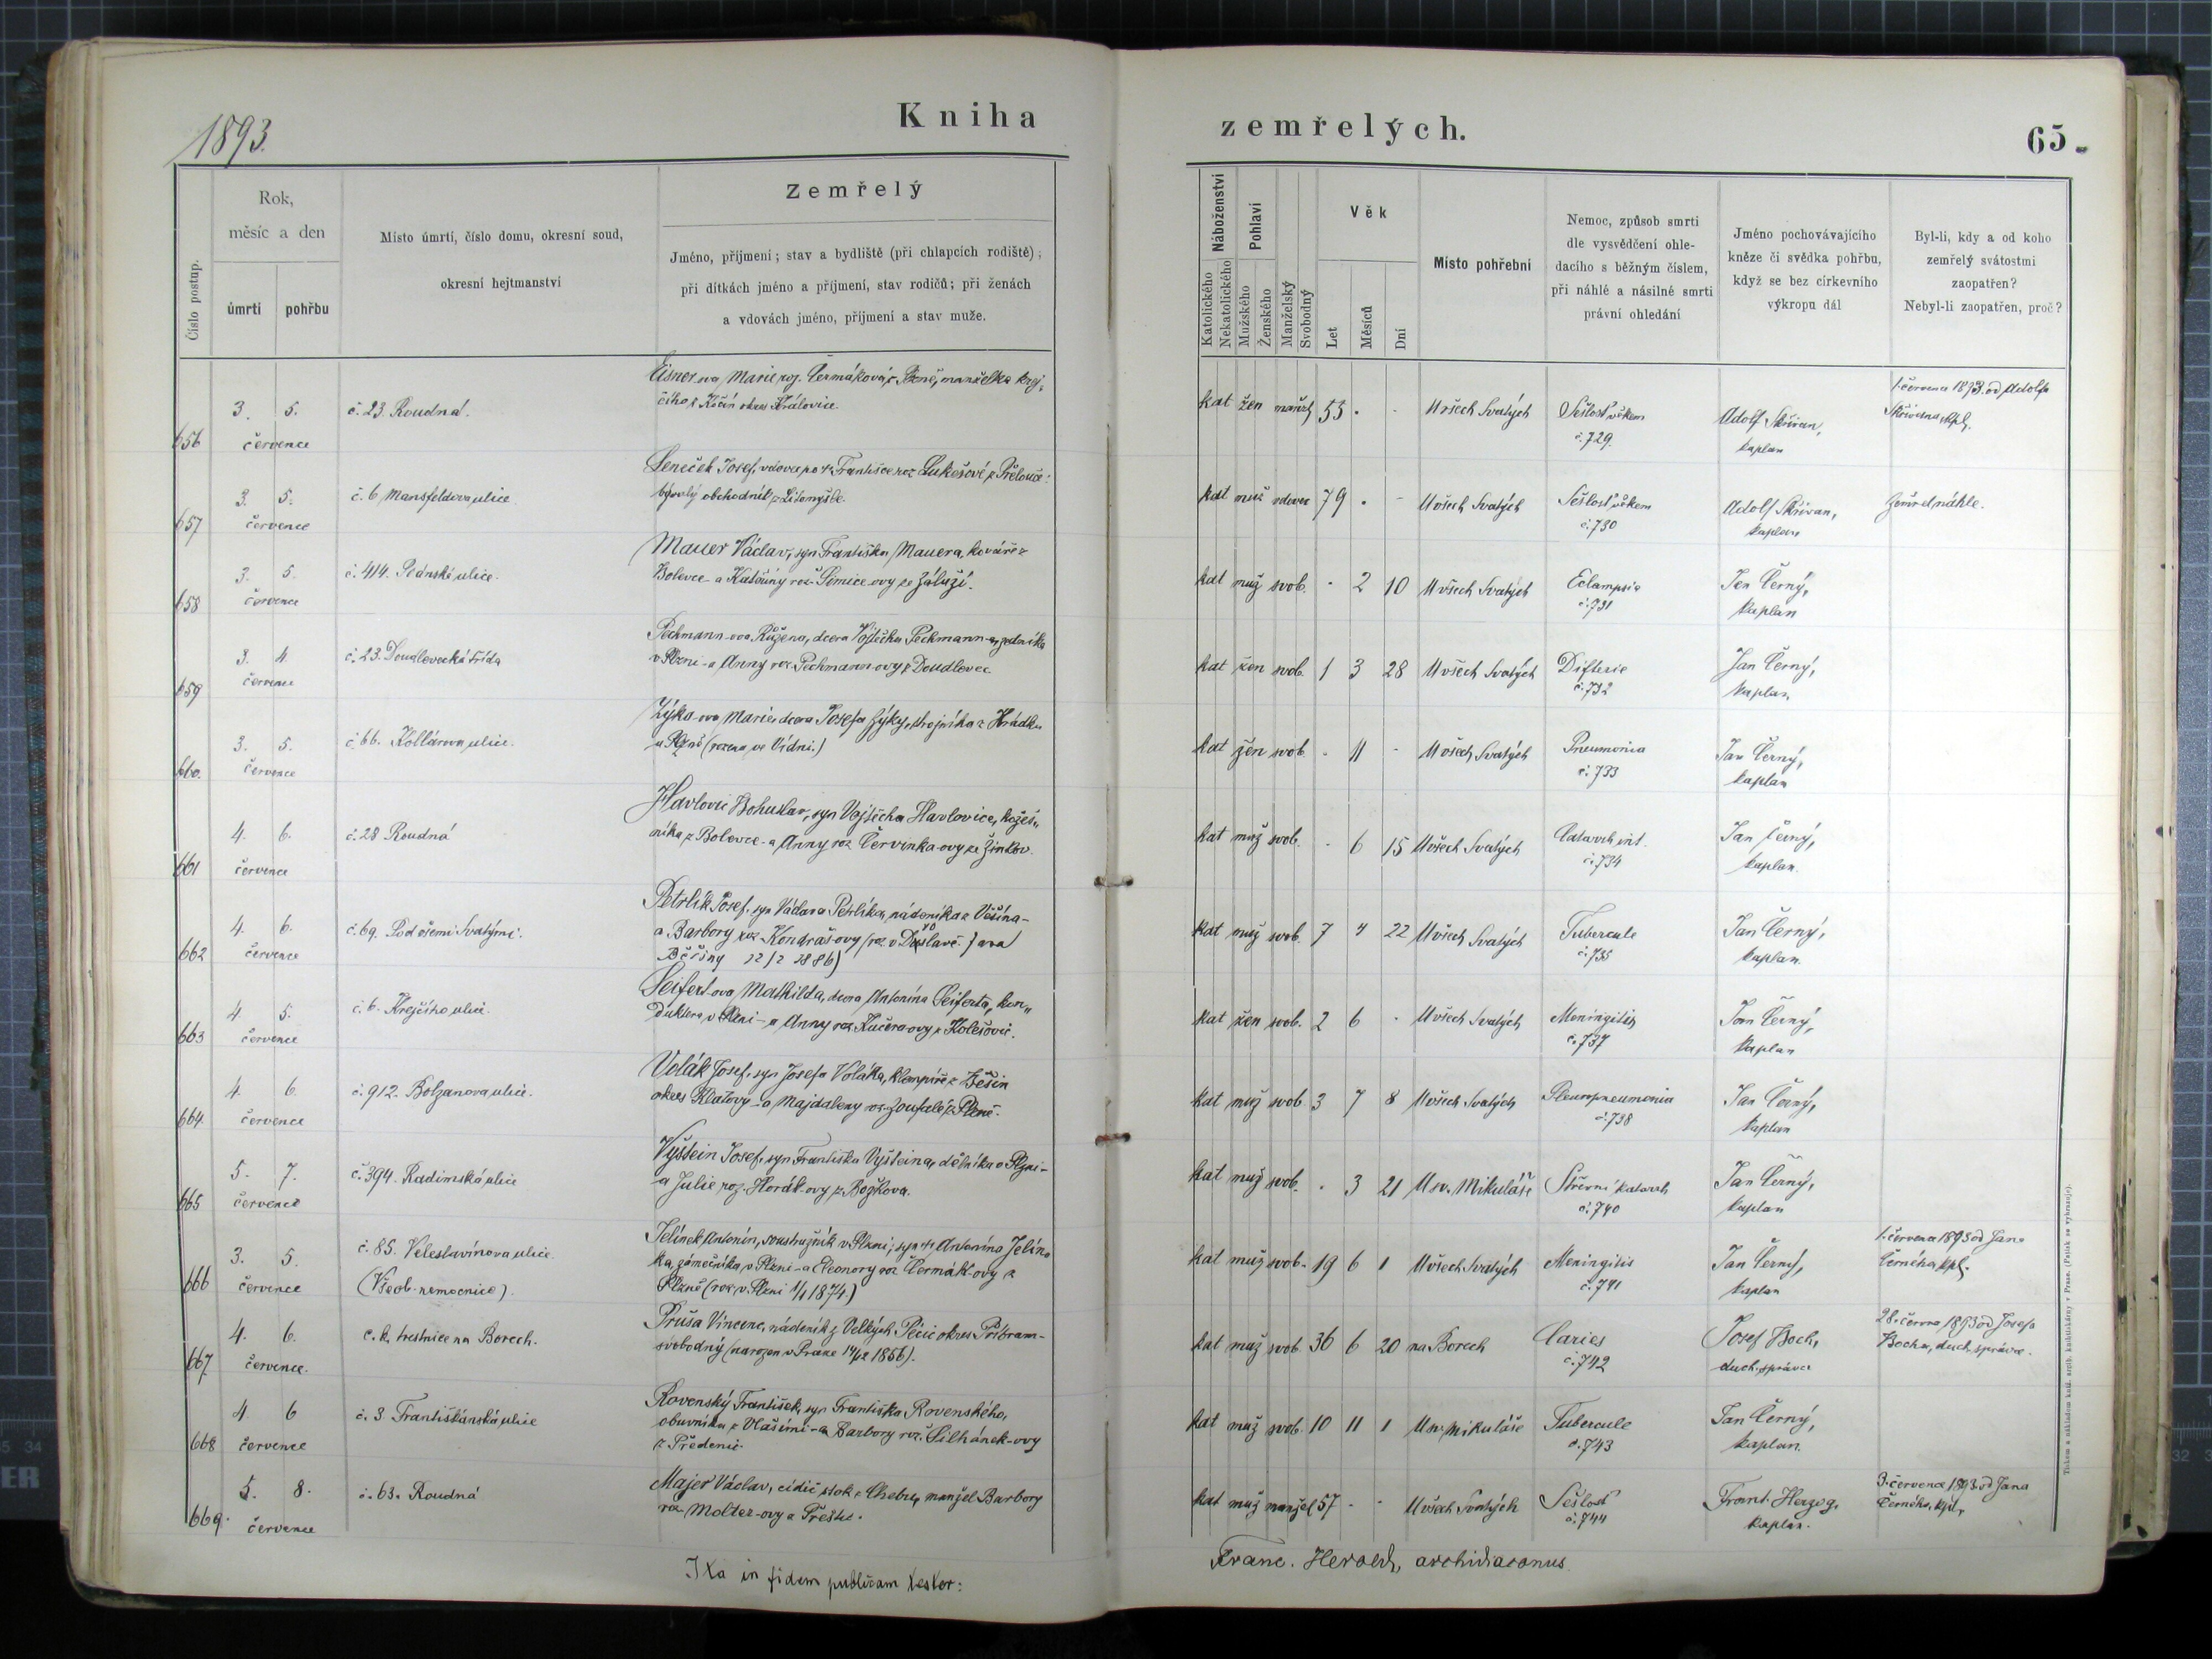 1893.
Kniha
zemřelých.
65
Číslo postup.
Rok,
měsíc a den
úmrtí
pohřbu
Místo úmrtí, číslo domu, okresní soud,
okresní hejtmanství
Zemřelý
Jméno, příjmení; stav a bydliště (při chlapcích rodiště);
při dítkách jméno a příjmení, stav rodičů; při ženách
a vdovách jméno, příjmení a stav muže.
Náboženství
Katolického
Nekatolického
Pohlaví
Mužského
Ženského
Manželský
Svobodný
Věk
Let
Měsíců
Dní
Místo pohřební
Nemoc, způsob smrti
dle vysvědčení ohle-
dacího s běžným číslem,
při náhlé a násilné smrti
právní ohledání
Jméno pochovávajícího
kněze či svědka pohřbu,
když se bez církevního
výkropu dál
Byl-li, kdy a od koho
zemřelý svátostmi
zaopatřen?
Nebyl-li zaopatřen, proč?
656 3. 5. července č. 23 Roudná.
Eisner-ova Marie roz. Čermáková z Plzně, manželka krej-
čího z Kočín okres Kralovice.
kat žen 55 · - U všech Svatých Sešlost věkem č. 729. Adolf Skřivan, kaplan
1. července 1893 od Adolfa
Skřivana, kpl.
657 3. 5. července č. 6 Mansfeldova ulice
Seneček Josef, vdovec po † Františce roz. Lukešové z Přelouče
bývalý obchodník z Litomyšle.
kat muž vdovec 79 · - U všech Svatých Sešlost věkem č. 730 Adolf Skřivan, kaplan
Zemřel náhle.
658 3. 5. července č. 414. ulice.
Mauer Václav, syn Františka Mauera, kováře z
Bolevce - a Kateřiny roz. ze Záluží.
kat muž svob. - 2 10 U všech Svatých Eclampsie č. 731 Jan Černý, kaplan
659 3. 4. července č. 23. Doudlevecká třída
Pechmann-ova Růžena, dcera Vojtěcha Pechmann-a, zedníka
v Plzni - a Anny roz. Pechmann-ovy z Doudlevec
kat žen svob. 1 3 28 U všech Svatých Difterie č. 732 Jan Černý, kaplan
660. 3. 5. července č. 66. Kollárova ulice.
Zýka-ova Marie, dcera Josefa Zýky, strojníka z Hrádku
u Plzně (rozena ve Vídni.)
kat žen svob. - 11 - U všech Svatých Pneumonia č. 733 Jan Černý, kaplan
661 4. 6. července č. 28 Roudná
Havlovic Bohuslav, syn Vojtěcha Havlovice, kožeš-
níka z Bolevce - a Anny roz. Červinka-ovy ze Žinkov.
kat muž svob. - 6 15 U všech Svatých Catarrh int. č. 734 Jan Černý, kaplan.
662 4. 6. července č. 69. Pod všemi Svatými.
Petrlík Josef, syn Václava Petrlíka, nádeníka z Věšína -
a Barbory roz. Kondrašovy
22/2 1886)
kat muž svob. 7 4 22 U všech Svatých Tubercule č. 735 Jan Černý, kaplan.
663 4. 5. července č. 6. Krejčího ulice.
Seifert-ova Mathilda, dcera Antonína Seiferta, kon-
duktera v Plzni - a Anny roz. Kučera-ovy z Kolešovic.
kat žen svob. 2 6 - U všech Svatých Meningitis č. 737 Jan Černý, kaplan
664. 4. 6. července č. 912. Bolzanova ulice.
Volák Josef, syn Josefa Voláka, klempíře z Běšin
okres Klatovy - a Majdaleny roz. Zoufalé z Plzně.
kat muž svob 3 7 8 U všech Svatých Pleuropneumonia č. 738 Jan Černý, kaplan
665 5. 7. července č. 394. Radimská ulice
Vyštein Josef, syn Františka Vyšteina, dělníka v Plzni -
a Julie roz. Horák-ovy z Božkova.
kat muž svob. - 3 21 U sv. Mikuláše Střevní katarrh č. 740 Jan Černý, kaplan
666 3. 5. července č. 85. Veleslavínova ulice.
(Všeob. nemocnice).
Jelínek Antonín, soustružník v Plzni; syn † Antonína Jelín-
ka, zámečníka v Plzni - a Eleonory roz. Čermák-ovy z
Plzně (roz. v Plzni 1/1 1874.)
kat muž svob. 19 6 1 U všech Svatých Meningitis č. 741 Jan Černý, kaplan
1. července 1893 od Jana
Černého, kpl.
667 4. 6. července. c. k. trestnice na Borech.
Průša Vincenc, nádeník z Velkých Pěčic okres Příbram -
svobodný (narozen v Praze 14/12 1856).
kat muž svob. 36 6 20 na Borech Caries č. 742 Josef Boch, duch. správce
28. června 1893 od Josefa
Bocha, duch. správce.
668 4 6 července č. 3 Františkánská ulice
Rovenský František, syn Františka Rovenského,
obuvníka z Vlašimi - a Barbory roz. Silhánek-ovy
z Předenic.
kat muž svob. 10 11 1 U sv. Mikuláše Tubercule č. 743 Jan Černý, kaplan.
669. 5. 8. července č. 63. Roudná
Majer Václav, cídič stok z Chebu, manžel Barbory
roz. Molter-ovy z Přeštic.
kat muž manžel 57 - - U všech Svatých Sešlost č. 744 Frant. Herzog, kaplan.
3. července 1893 od Jana
Černého, kpl.
Ita in fidem publicam testor:
Franc. Herold, archidiaconus.